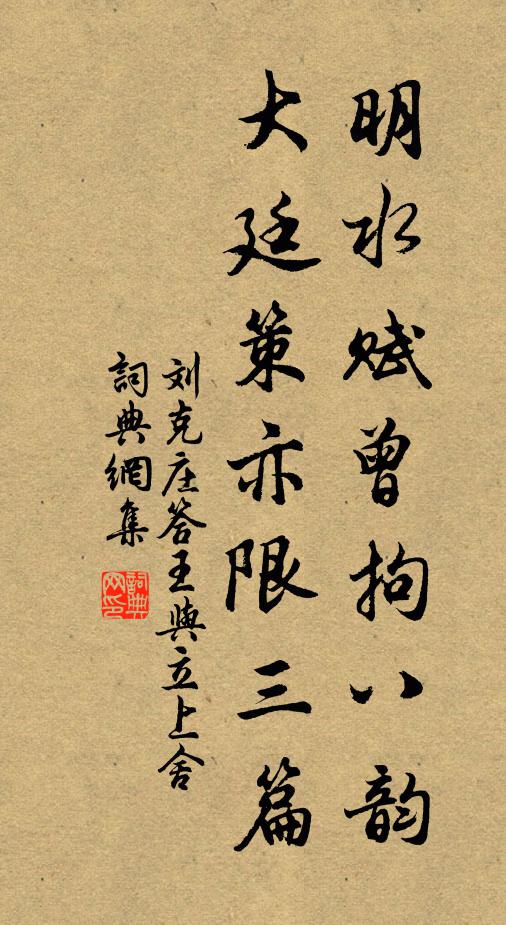 明水赋曾拘八韵
大廷策亦限三篇
刘克庄答王與立上舍
詞典網集
詞典网印